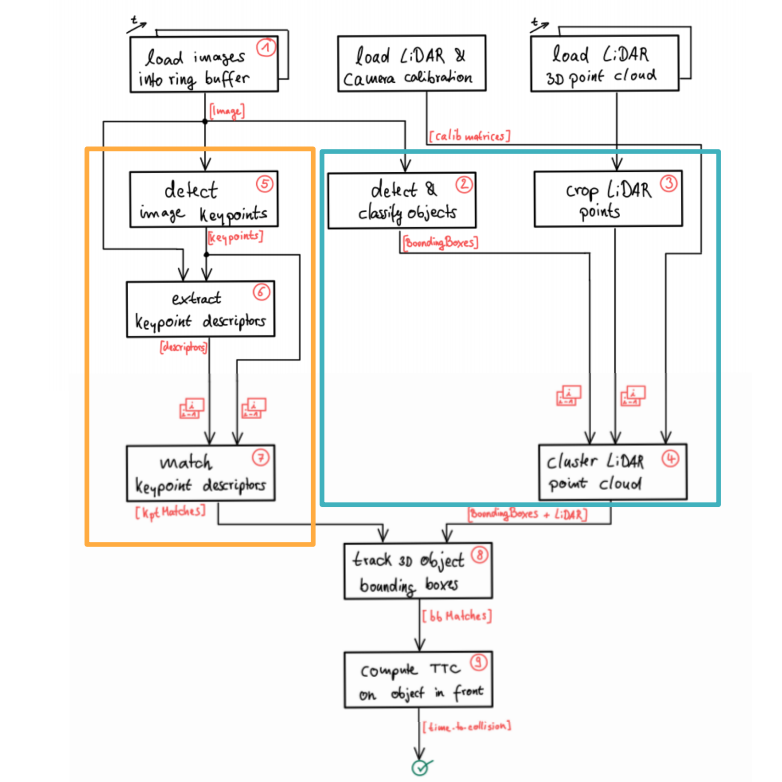 t
load images
into ring buffer
1
load LiDAR &
Camera calibration
t
load LiDAR
3D point cloud
[Image]
[calib matrices]
detect
image keypoints
5
detect &
classify objects
2
crop LiDAR
points
3
[keypoints]
[BoundingBoxes]
extract
keypoint descriptors
6
[descriptors]
i
i-1
i
i-1
i
i-1
i
i-1
match
keypoint descriptors
7
cluster LiDAR
point cloud
4
[kptMatches]
[BoundingBoxes + LiDAR]
track 3D object
bounding boxes
8
[bbMatches]
compute TTC
on object in front
9
[time-to-collision]